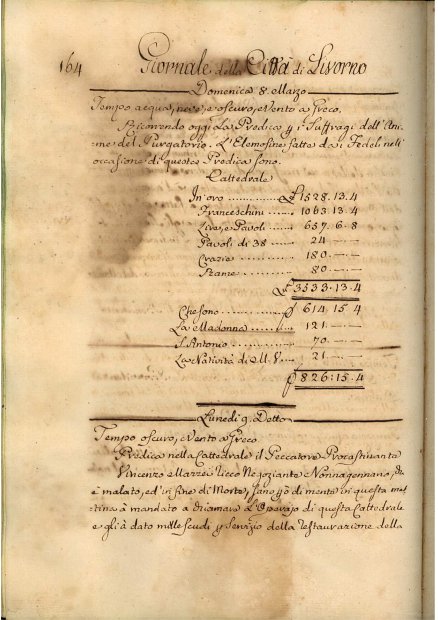 164 Giornale della Città di Livorno
Domenica 8. Marzo
Tempo acqua, neve, e oscuro, e Vento a Greco.
Ricorrendo oggi la Predica p i Suffragi dell'Ani-
me del Purgatorio. L'Elemosine fatte da i Fedeli nell'
occasione di questa Predica sono.
Cattedrale
In oro ........ 1528.13.4
Franceschini ...... 1063.13.4
Lire, e Pavoli ..... 657.6.8
Pavoli di 38 ...... 24 — —
Crazie ........ 180 — —
Stanie ........ 80 — —
3533.13.4
Che sono ........ 614.15.4
La Madonna ........ 121 — —
S. Antonio ........ 70 — —
La Natività di M. V. .. 21 — —
826:15.4
Lunedì 9. Detto
Tempo oscuro, e Vento a Greco
Predica nella Cattedrale il Peccatore Procrastinante
Vincenzo Marzei Ricco Negoziante e Nonnagennario,
è malato, ed' in fine di Morte, sano però di mente in questa mat-
tina à mandato a chiamare L'Operajo di questa Cattedrale
e gli à dato mille scudi p servizio della restaurazione della